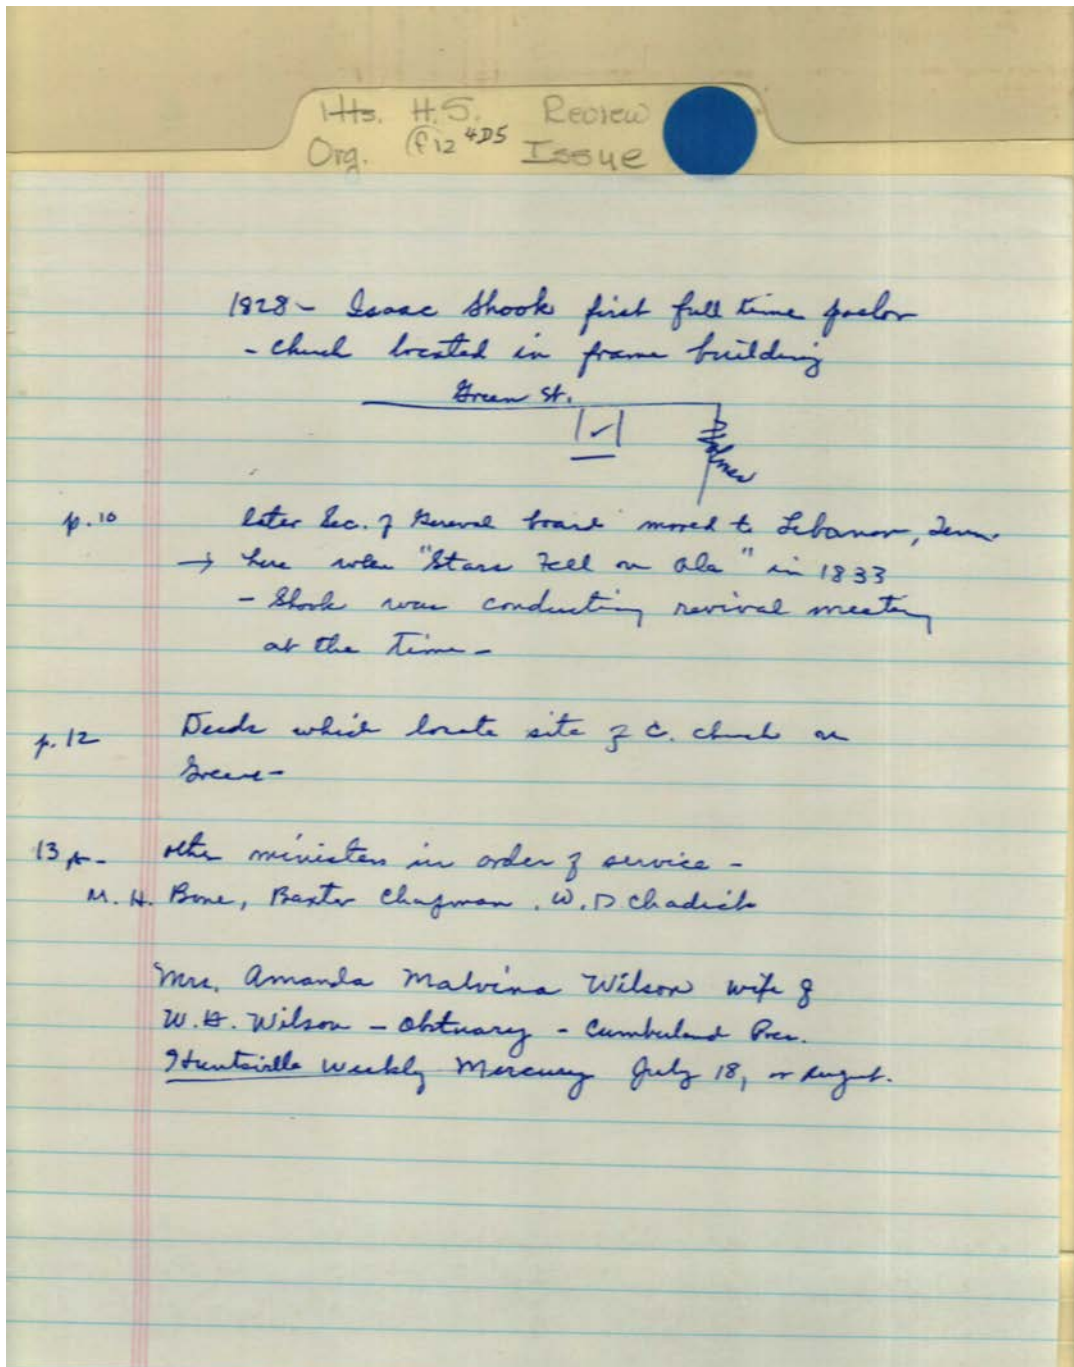 Hts. H.S. Review
Org. (f12 4D5 Issue
1828 - Isaac Shook first full time pastor
- Church located in frame building
Green St.
Holmes
p.10 later Sec. of General board moved to Lebanon, Tenn.
→ here when "Stars Fell on Ala" in 1833
- Shook was conducting revival meeting
at the time -
p.12 Deeds which locate site of C. church on
Greene -
13 p - other ministers in order of service -
M. H. Bone, Baxter Chapman, W. D Chadick
Mrs. Amanda Malvina Wilson wife of
W. H. Wilson - Obtuary - Cumberland Pres.
Huntsville Weekly Mercury July 18, or August.